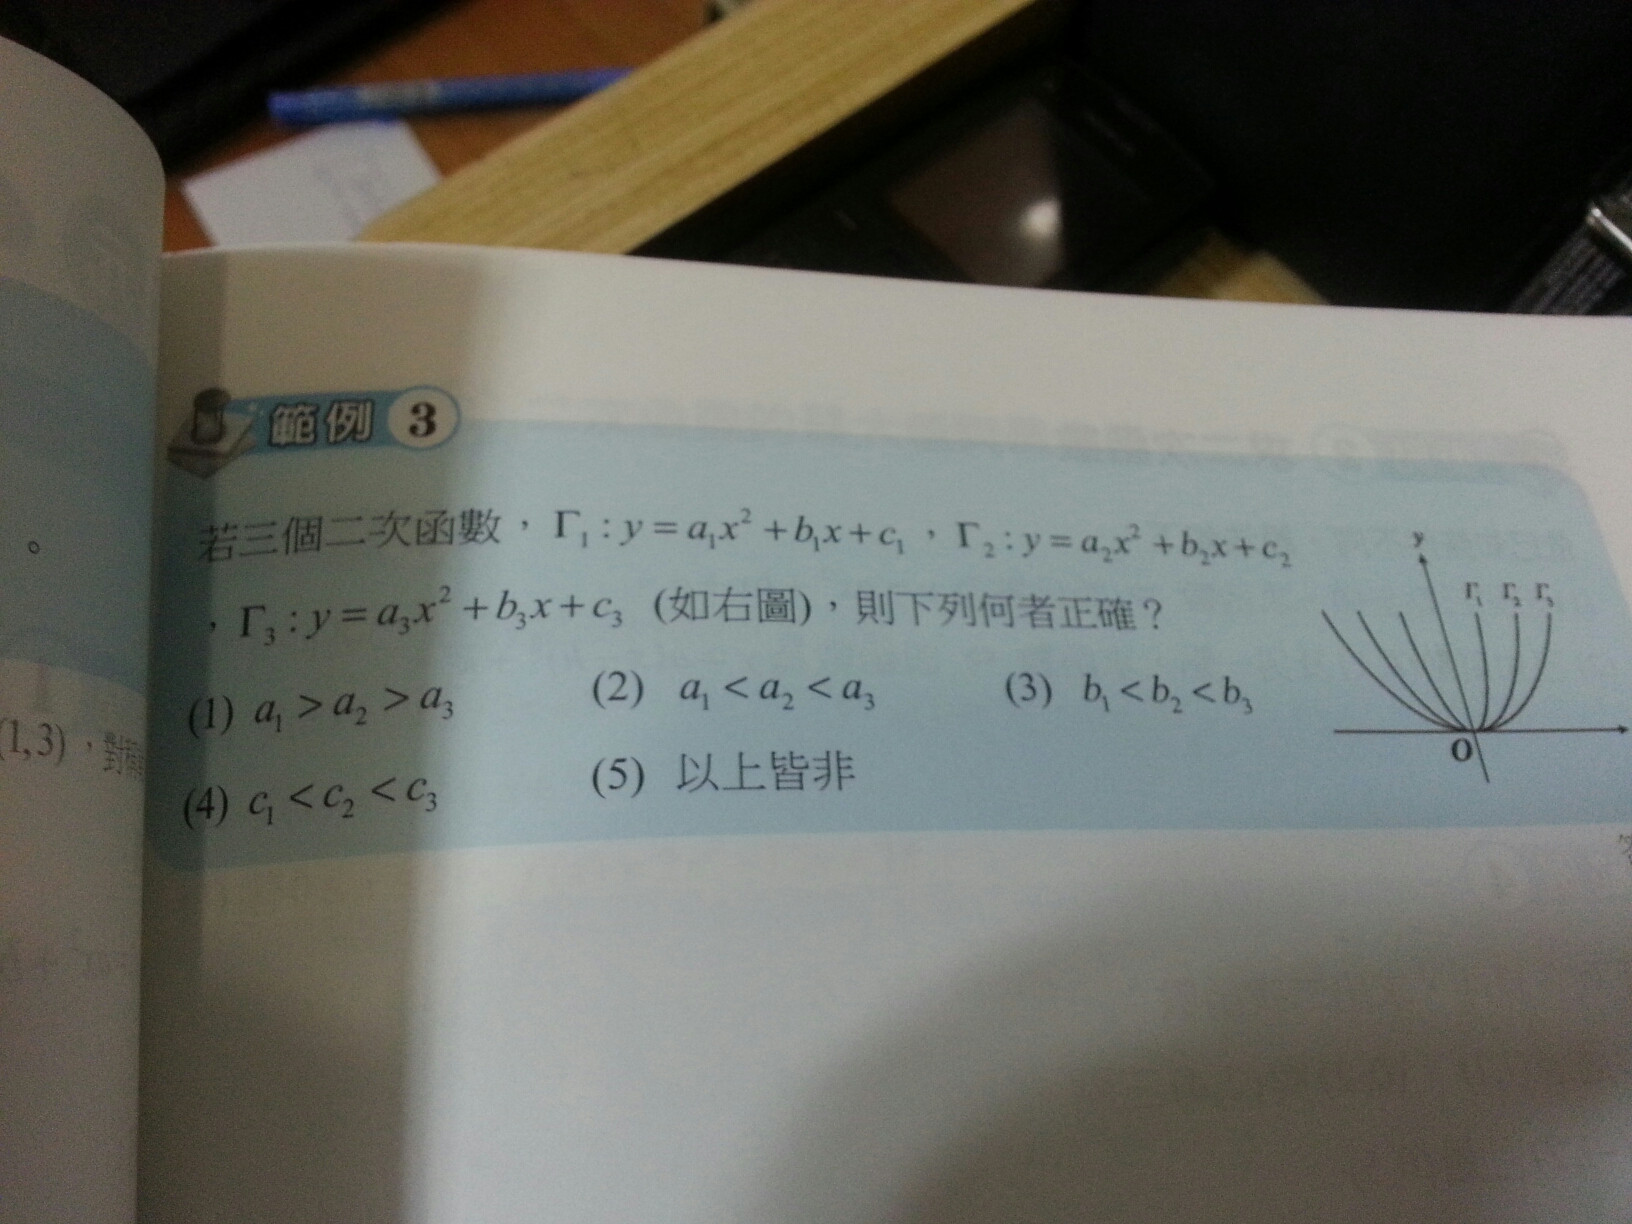 範例 3
若三個二次函數，Γ₁ : y = a₁x² + b₁x + c₁，Γ₂ : y = a₂x² + b₂x + c₂
，Γ₃ : y = a₃x² + b₃x + c₃ (如右圖)，則下列何者正確？
(1) a₁ > a₂ > a₃ (2) a₁ < a₂ < a₃ (3) b₁ < b₂ < b₃
(4) c₁ < c₂ < c₃ (5) 以上皆非
y
Γ₁ Γ₂ Γ₃
O
。
(1,3)，對稱